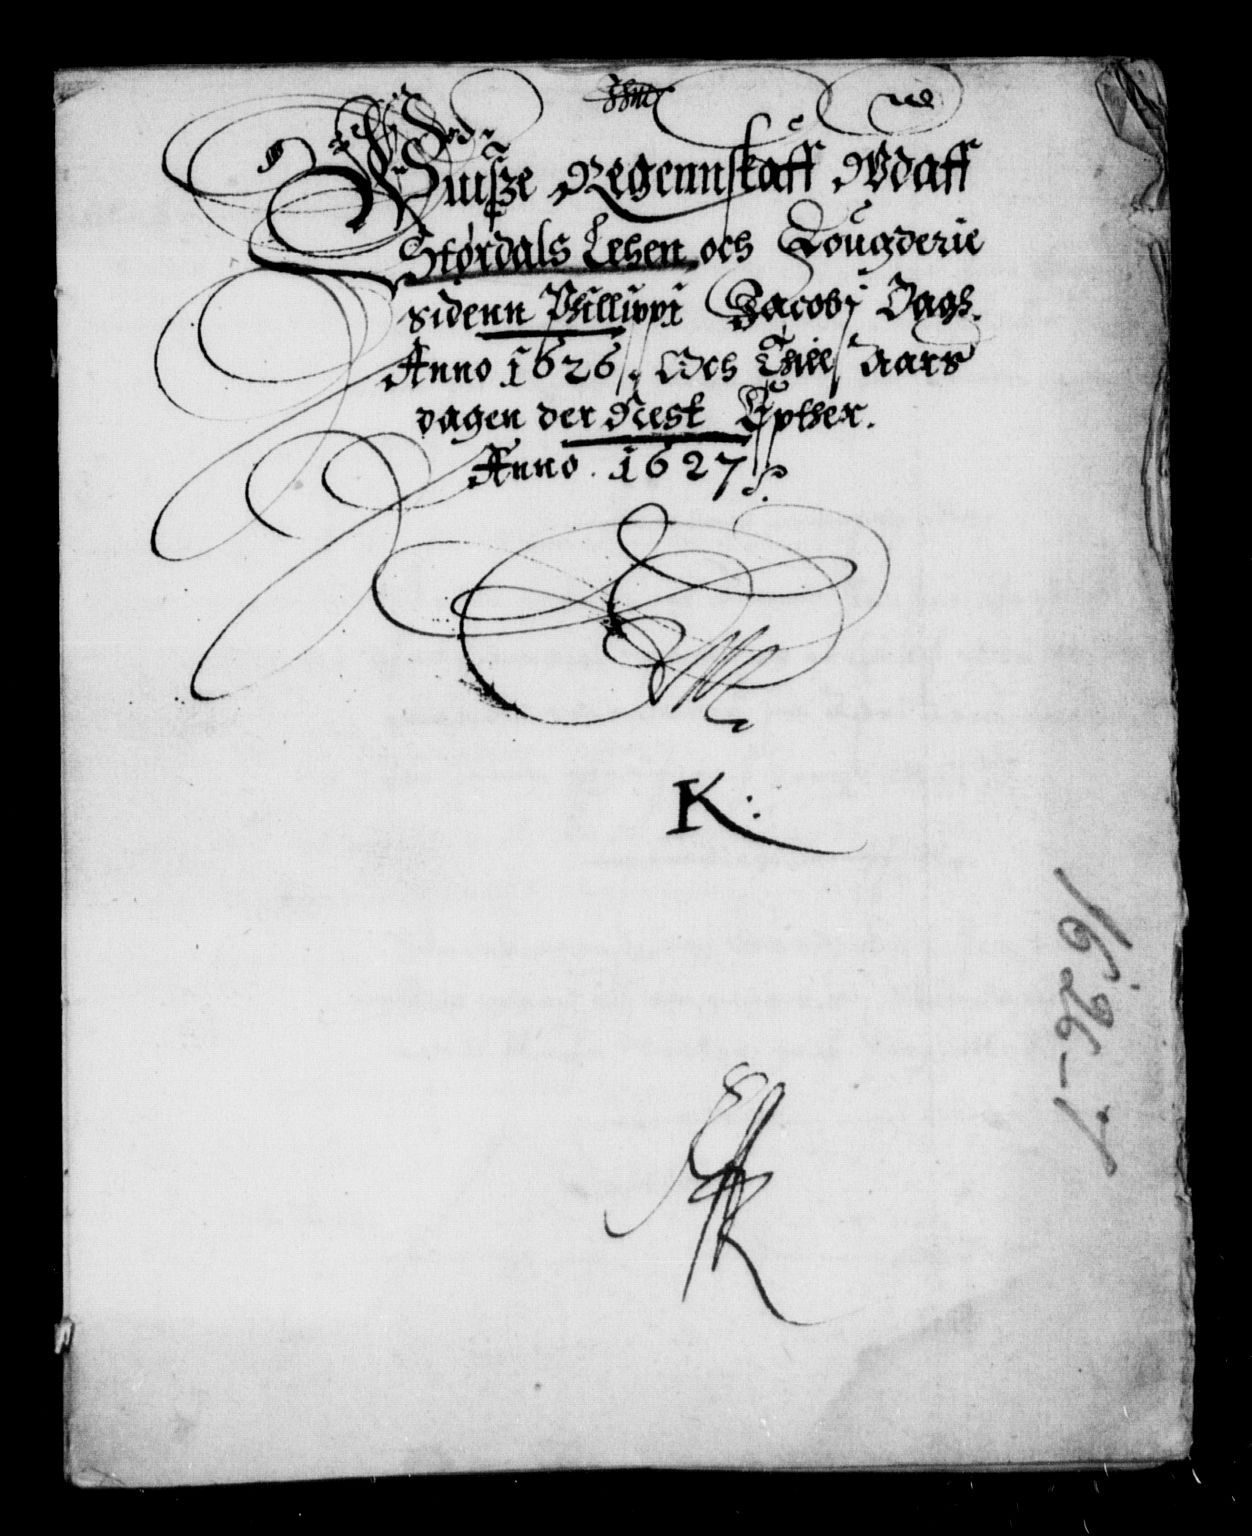 Wuisze Regennskaff Wdaff
Størdals Lehen och Fougderie
sidenn Phillippi Jacobi Dags.
Anno 1626. Och Thill Aars
dagen der Nest Epther.
Anno. 1627
K:
1626-7